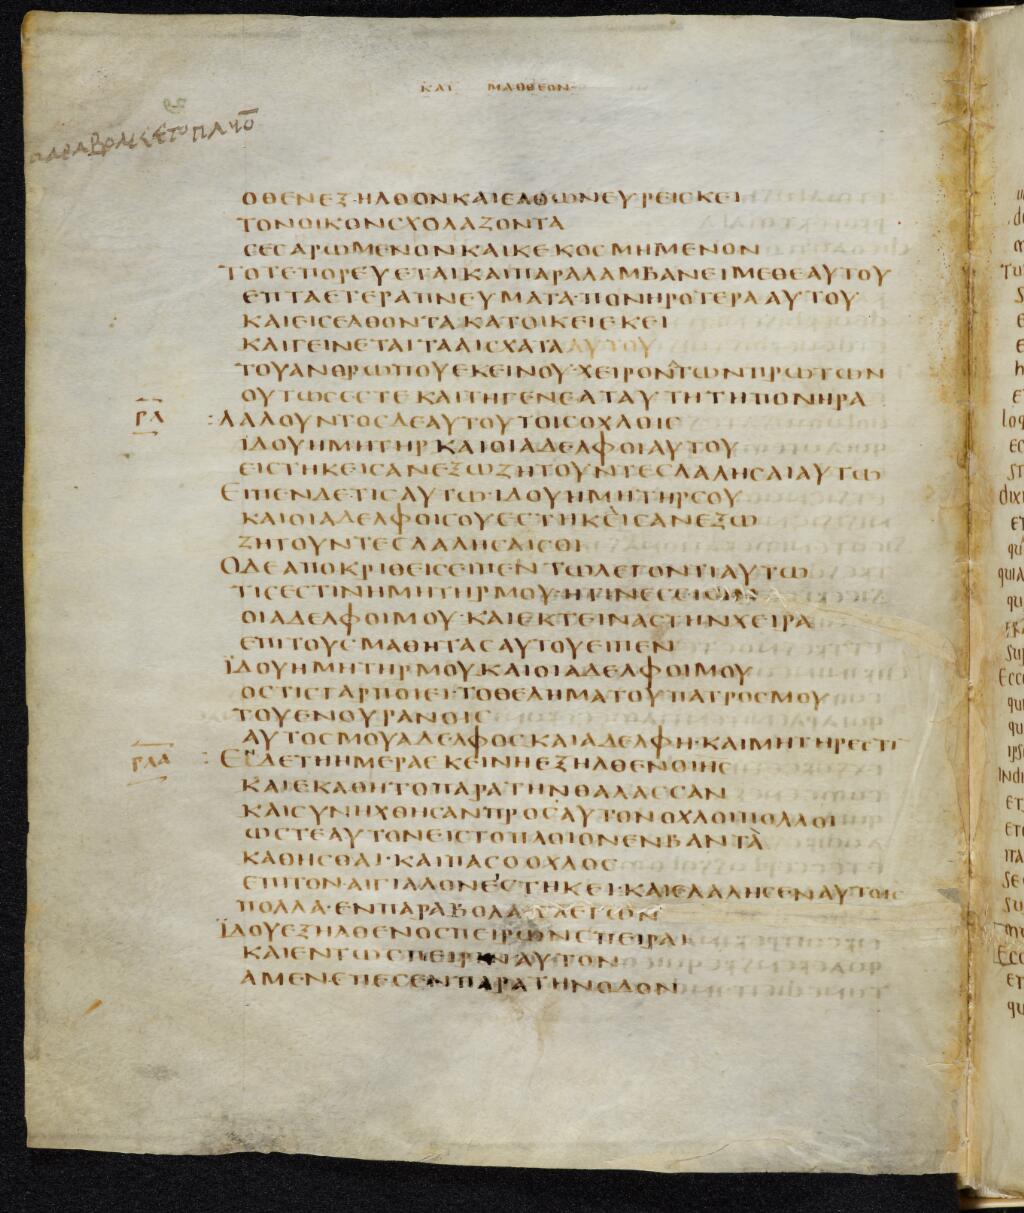 ΚΑΤ ΜΑΘΘΕΟΝ
ΟΘΕΝΕΞΗΛΘΟΝΚΑΙΕΛΘΩΝΕΥΡΕΙΣΚΕΙ
ΤΟΝΟΙΚΟΝΣΧΟΛΑΖΟΝΤΑ
ΣΕΣΑΡΩΜΕΝΟΝΚΑΙΚΕΚΟΣΜΗΜΕΝΟΝ
ΤΟΤΕΠΟΡΕΥΕΤΑΙΚΑΙΠΑΡΑΛΑΜΒΑΝΕΙΜΕΘΕΑΥΤΟΥ
ΕΠΤΑΕΤΕΡΑΠΝΕΥΜΑΤΑ·ΠΟΝΗΡΟΤΕΡΑΑΥΤΟΥ
ΚΑΙΕΙΣΕΛΘΟΝΤΑΚΑΤΟΙΚΕΙΕΚΕΙ
ΚΑΙΓΕΙΝΕΤΑΙΤΑΑΙΣΧΑΤΑΑΥΤΟΥ
ΤΟΥΑΝΘΡΩΠΟΥΕΚΕΙΝΟΥ·ΧΕΙΡΟΝΤΩΝΠΡΩΤΩΝ
ΟΥΤΩΣΕΣΤΕΚΑΙΤΗΓΕΝΕΑΤΑΥΤΗΤΗΠΟΝΗΡΑ
ΡΛ :ΛΑΛΟΥΝΤΟΣΔΕΑΥΤΟΥΤΟΙΣΟΧΛΟΙΣ
ΙΔΟΥΗΜΗΤΗΡΚΑΙΟΙΑΔΕΛΦΟΙΑΥΤΟΥ
ΕΙΣΤΗΚΕΙΣΑΝΕΞΩΖΗΤΟΥΝΤΕΣΛΑΛΗΣΑΙΑΥΤΩ
ΕΙΠΕΝΔΕΤΙΣΑΥΤΩ·ΙΔΟΥΗΜΗΤΗΡΣΟΥ
ΚΑΙΟΙΑΔΕΛΦΟΙΣΟΥΕΣΤΗΚΕΙΣΑΝΕΞΩ
ΖΗΤΟΥΝΤΕΣΛΑΛΗΣΑΙΣΟΙ
ΟΔΕΑΠΟΚΡΙΘΕΙΣΕΙΠΕΝΤΩΛΕΓΟΝΤΙΑΥΤΩ
ΤΙΣΕΣΤΙΝΗΜΗΤΗΡΜΟΥ·ΗΤΙΝΕΣΕΙΣΙΝ
ΟΙΑΔΕΛΦΟΙΜΟΥ·ΚΑΙΕΚΤΕΙΝΑΣΤΗΝΧΕΙΡΑ
ΕΠΙΤΟΥΣΜΑΘΗΤΑΣΑΥΤΟΥΕΙΠΕΝ
ΪΔΟΥΗΜΗΤΗΡΜΟΥΚΑΙΟΙΑΔΕΛΦΟΙΜΟΥ
ΟΣΤΙΣΓΑΡΠΟΙΕΙ·ΤΟΘΕΛΗΜΑΤΟΥΠΑΤΡΟΣΜΟΥ
ΤΟΥΕΝΟΥΡΑΝΟΙΣ
ΑΥΤΟΣΜΟΥΑΔΕΛΦΟΣΚΑΙΑΔΕΛΦΗ·ΚΑΙΜΗΤΗΡΕΣΤΙ
ΡΛΑ :ΕΝΔΕΤΗΗΜΕΡΑΕΚΕΙΝΗΕΞΗΛΘΕΝΟΙΗΣ
ΚΑΙΕΚΑΘΗΤΟΠΑΡΑΤΗΝΘΑΛΑΣΣΑΝ
ΚΑΙΣΥΝΗΧΘΗΣΑΝΠΡΟΣΑΥΤΟΝΟΧΛΟΙΠΟΛΛΟΙ
ΩΣΤΕΑΥΤΟΝΕΙΣΤΟΠΛΟΙΟΝΕΝΒΑΝΤΑ
ΚΑΘΗΣΘΑΙ·ΚΑΙΠΑΣΟΟΧΛΟΣ
ΕΠΙΤΟΝ·ΑΙΓΙΑΛΟΝΕΣΤΗΚΕΙ·ΚΑΙΕΛΑΛΗΣΕΝΑΥΤΟΙΣ
ΠΟΛΛΑ·ΕΝΠΑΡΑΒΟΛΑΙΣΛΕΓΩΝ
ΪΔΟΥΕΞΗΛΘΕΝΟΣΠΕΙΡΩΝΣΠΕΙΡΑΙ
ΚΑΙΕΝΤΩΣΠΕΙΡΙΝΑΥΤΟΝ
ΑΜΕΝΕΠΕΣΕΝΠΑΡΑΤΗΝΟΔΟΝ